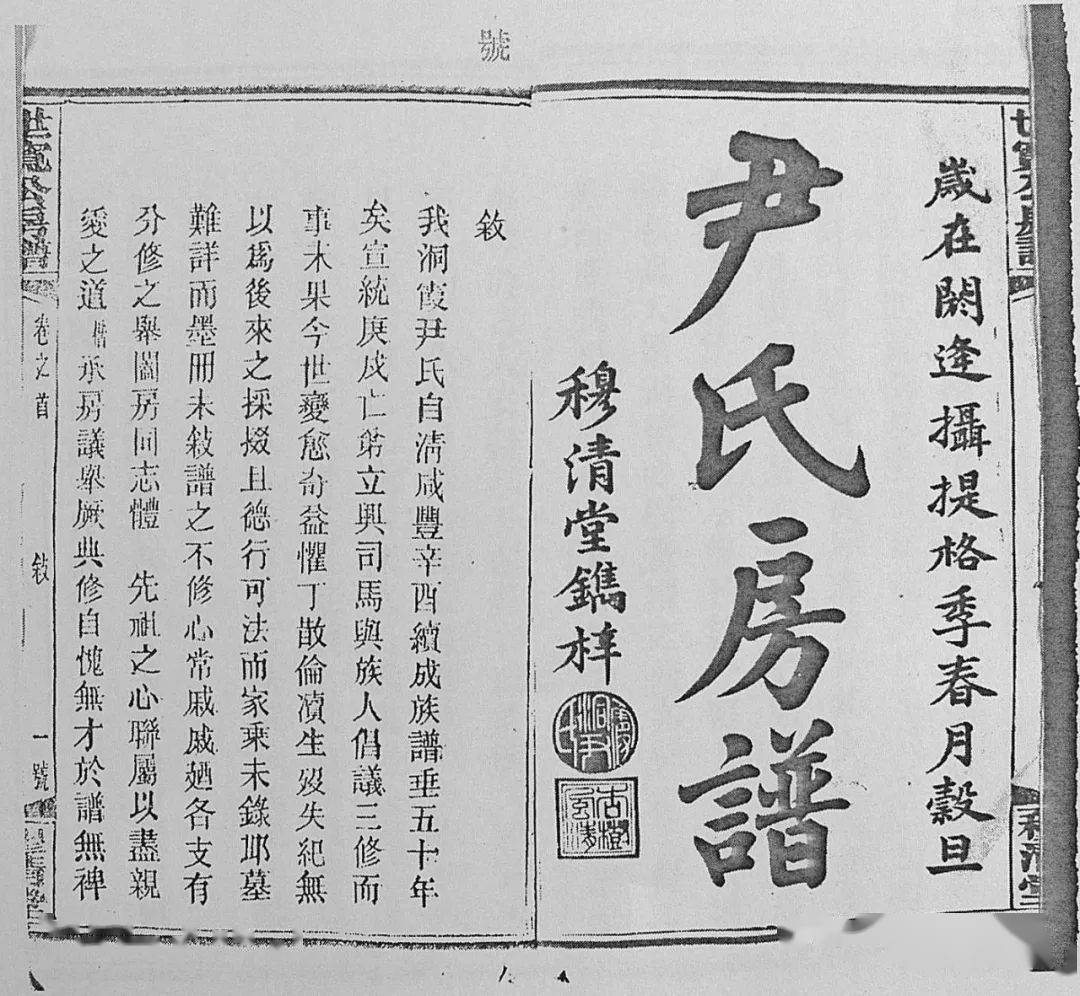 號
歲在閼逢攝提格季春月穀旦
尹氏房譜
穆清堂鐫梓
敘
我洞霞尹氏自清咸豐辛酉續成族譜垂五十年
矣宣統庚戌亡弟立興司馬與族人倡議三修而
事未果今世變愈奇益懼丁散倫凟生歿失紀無
以爲後來之採掇且德行可法而家乘未錄邱墓
難詳而墨冊未敍譜之不修心常戚戚廼各支有
分修之舉闔房同志體 先祖之心聯屬以盡親
愛之道 楷承房議舉厥典修自愧無才於譜無裨
卷之首
敍
一號